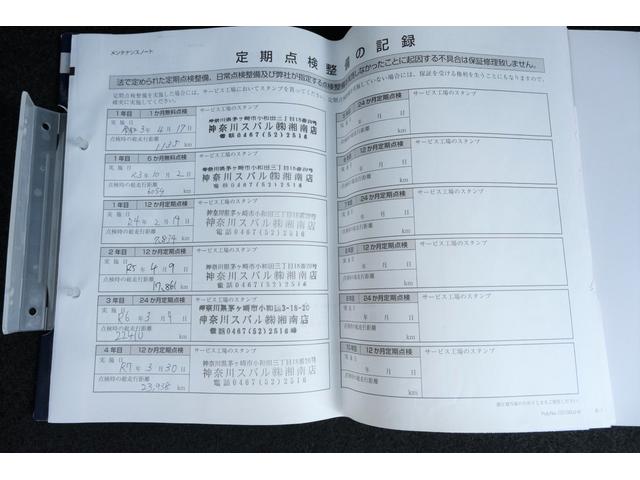 メンテナンスノート
定期点検整備の記録
法で定められた定期点検整備、日常点検整備及び弊社が指定する点検整備
しなかったことに起因する不具合は保証修理致しません。
定期点検整備を実施した場合には、サービス工場においてスタンプを貰ってください。定期点
していない場合には、保証を受ける権利を失うことにもなりますので、
確実に実施してください。
1年目 1か月無料点検 サービス工場のスタンプ
実施日
令和3年4月17日
点検時の総走行距離
1135 km
神奈川県茅ヶ崎市小和田三丁目18番20号
神奈川スバル㈱湘南店
電話0467(52)2516
1年目 6か月無料点検 サービス工場のスタンプ
実施日
R3年10月2日
点検時の総走行距離
6054 km
神奈川県茅ヶ崎市小和田三丁目18番20号
神奈川スバル㈱湘南店
電話0467(52)2516
1年目 12か月定期点検 サービス工場のスタンプ
実施日
R4年2月19日
点検時の総走行距離
9,874 km
神奈川県茅ヶ崎市小和田三丁目18番20号
神奈川スバル㈱湘南店
電話0467(52)2516
2年目 12か月定期点検 サービス工場のスタンプ
実施日
R5年4月9日
点検時の総走行距離
17,861 km
神奈川県茅ヶ崎市小和田三丁目18番20号
神奈川スバル㈱湘南店
電話0467(52)2516
3年目 24か月定期点検 サービス工場のスタンプ
実施日
R6年3月9日
点検時の総走行距離
22410 km
神奈川県茅ヶ崎市小和田3-18-20
神奈川スバル㈱湘南店
電話0467(52)2516
4年目 12か月定期点検 サービス工場のスタンプ
実施日
R7年3月30日
点検時の総走行距離
23,938 km
神奈川県茅ヶ崎市小和田三丁目18番20号
神奈川スバル㈱湘南店
電話0467(52)2516
24か月定期点検 サービス工場のスタンプ
年 月 日
km
12か月定期点検 サービス工場のスタンプ
年 月 日
km
24か月定期点検 サービス工場のスタンプ
年 月 日
km
12か月定期点検 サービス工場のスタンプ
年 月 日
km
24か月定期点検 サービス工場のスタンプ
年 月 日
km
12か月定期点検 サービス工場のスタンプ
年 月 日
km